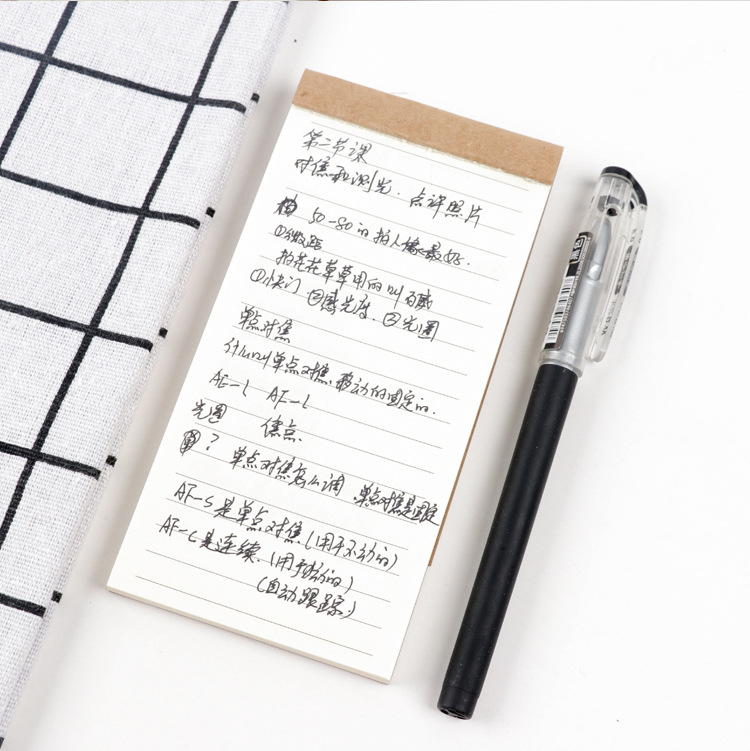 第二节课
对焦和测光. 点评照片
50-80的拍人像最好.
①微距
拍花花草草用的叫百微
①快门 ②感光度. ③光圈
单点对焦
什么叫单点对焦. 移动的固定的.
AE-L AF-L
光圈 焦点.
? 单点对焦怎么调 单点对焦是固定
AF-S是单点对焦.(用于不动的)
AF-C是连续.(用于动的)
(自动跟踪.)
黑色